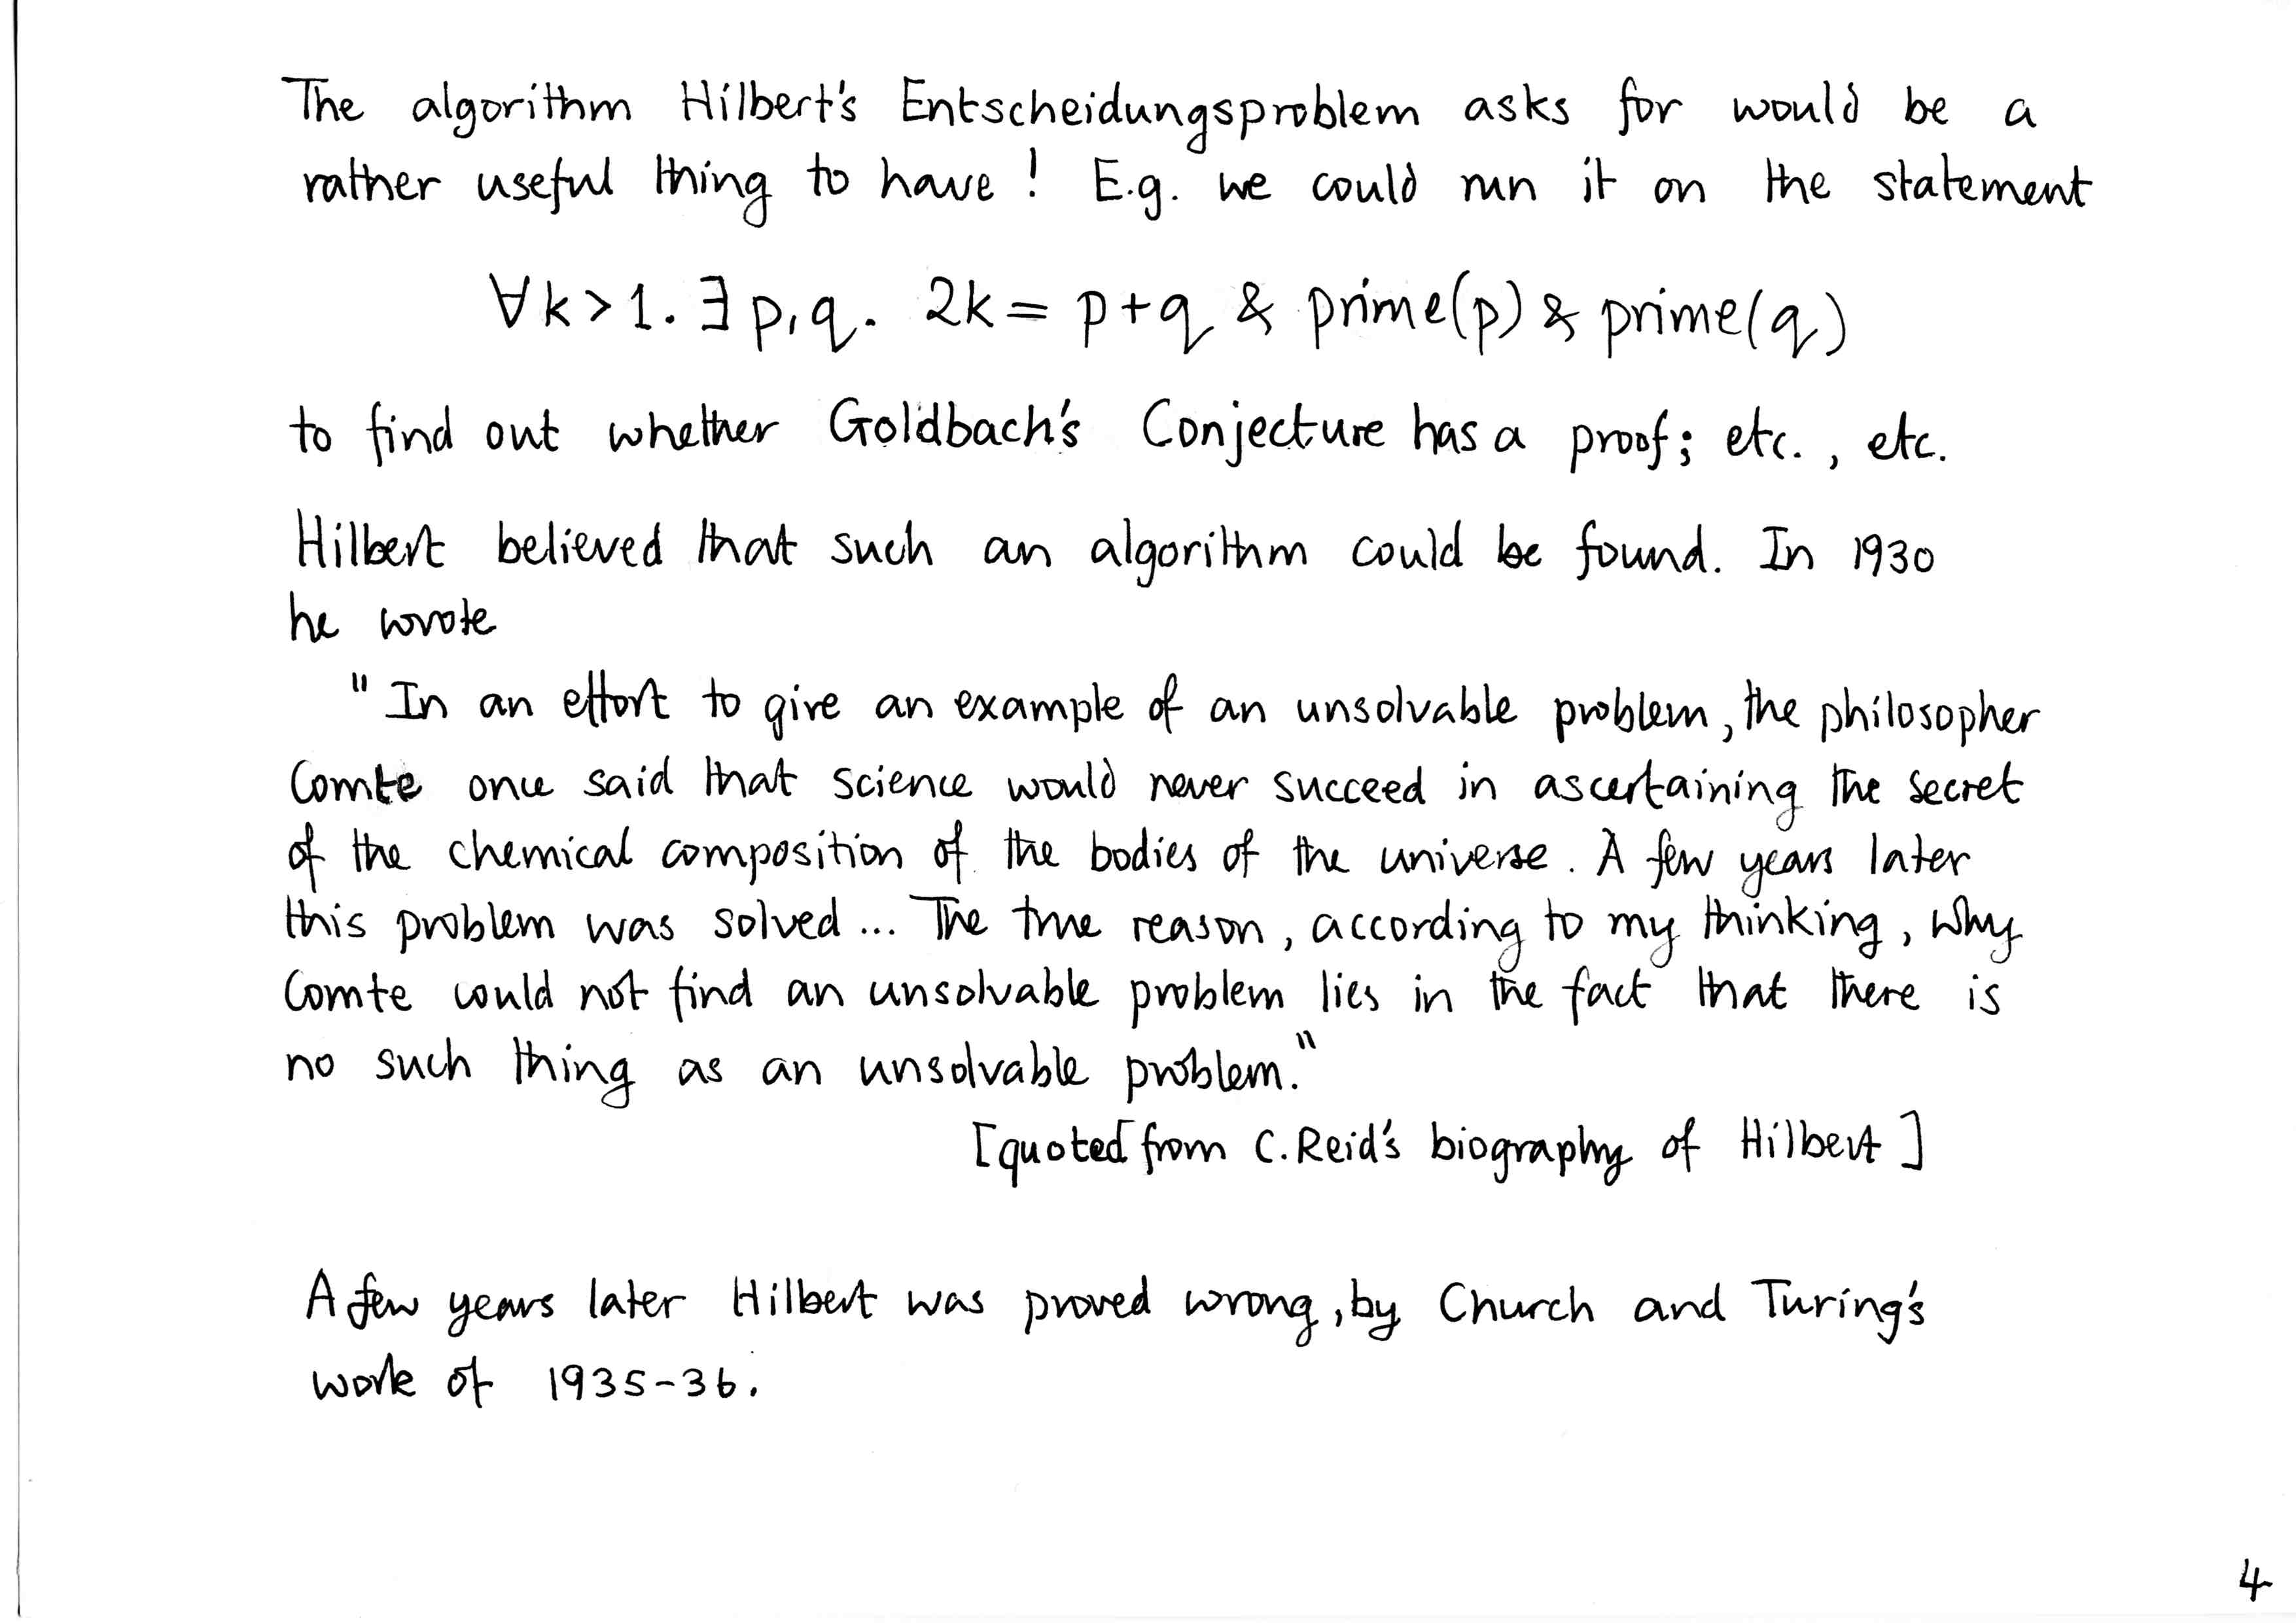 The algorithm Hilbert's Entscheidungsproblem asks for would be a
rather useful thing to have! E.g. we could run it on the statement
∀k>1. ∃p,q. 2k = p+q & prime(p) & prime(q)
to find out whether Goldbach's Conjecture has a proof; etc., etc.
Hilbert believed that such an algorithm could be found. In 1930
he wrote
"In an effort to give an example of an unsolvable problem, the philosopher
Comte once said that science would never succeed in ascertaining the secret
of the chemical composition of the bodies of the universe. A few years later
this problem was solved... The true reason, according to my thinking, why
Comte could not find an unsolvable problem lies in the fact that there is
no such thing as an unsolvable problem."
[quoted from C.Reid's biography of Hilbert]
A few years later Hilbert was proved wrong, by Church and Turing's
work of 1935-36.
4